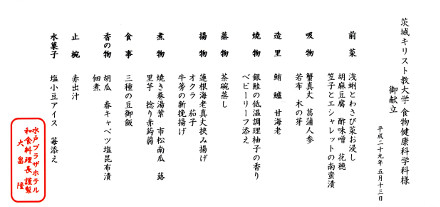 茨城キリスト教大学 食物健康科学科様
御献立
平成二十九年 五月十三日
前菜 浅蜊とわさび菜お浸し
胡麻豆腐 酢味噌 花穂
筍子とエシャレットの南蛮漬
吸物 蟹真丈 菖蒲人参
若布 木の芽
造里 鮪 鱸 甘海老
焼物 銀鮭の低温調理柚子の香り
ベビーリーフ添え
蒸物 茶碗蒸し
揚物 蓮根海老真丈挟み揚げ
オクラ 茄子
牛蒡の新挽揚げ
煮物 焼き巻湯葉 市松南瓜 蕗
里芋 捻り赤蒟蒻
食事 三種の豆御飯
香の物 胡瓜 春キャベツ塩昆布漬
佃煮
止椀 赤出汁
水菓子 塩小豆アイス 苺添え
水戸プラザホテル
和食料理長 謹製
大畠 隆